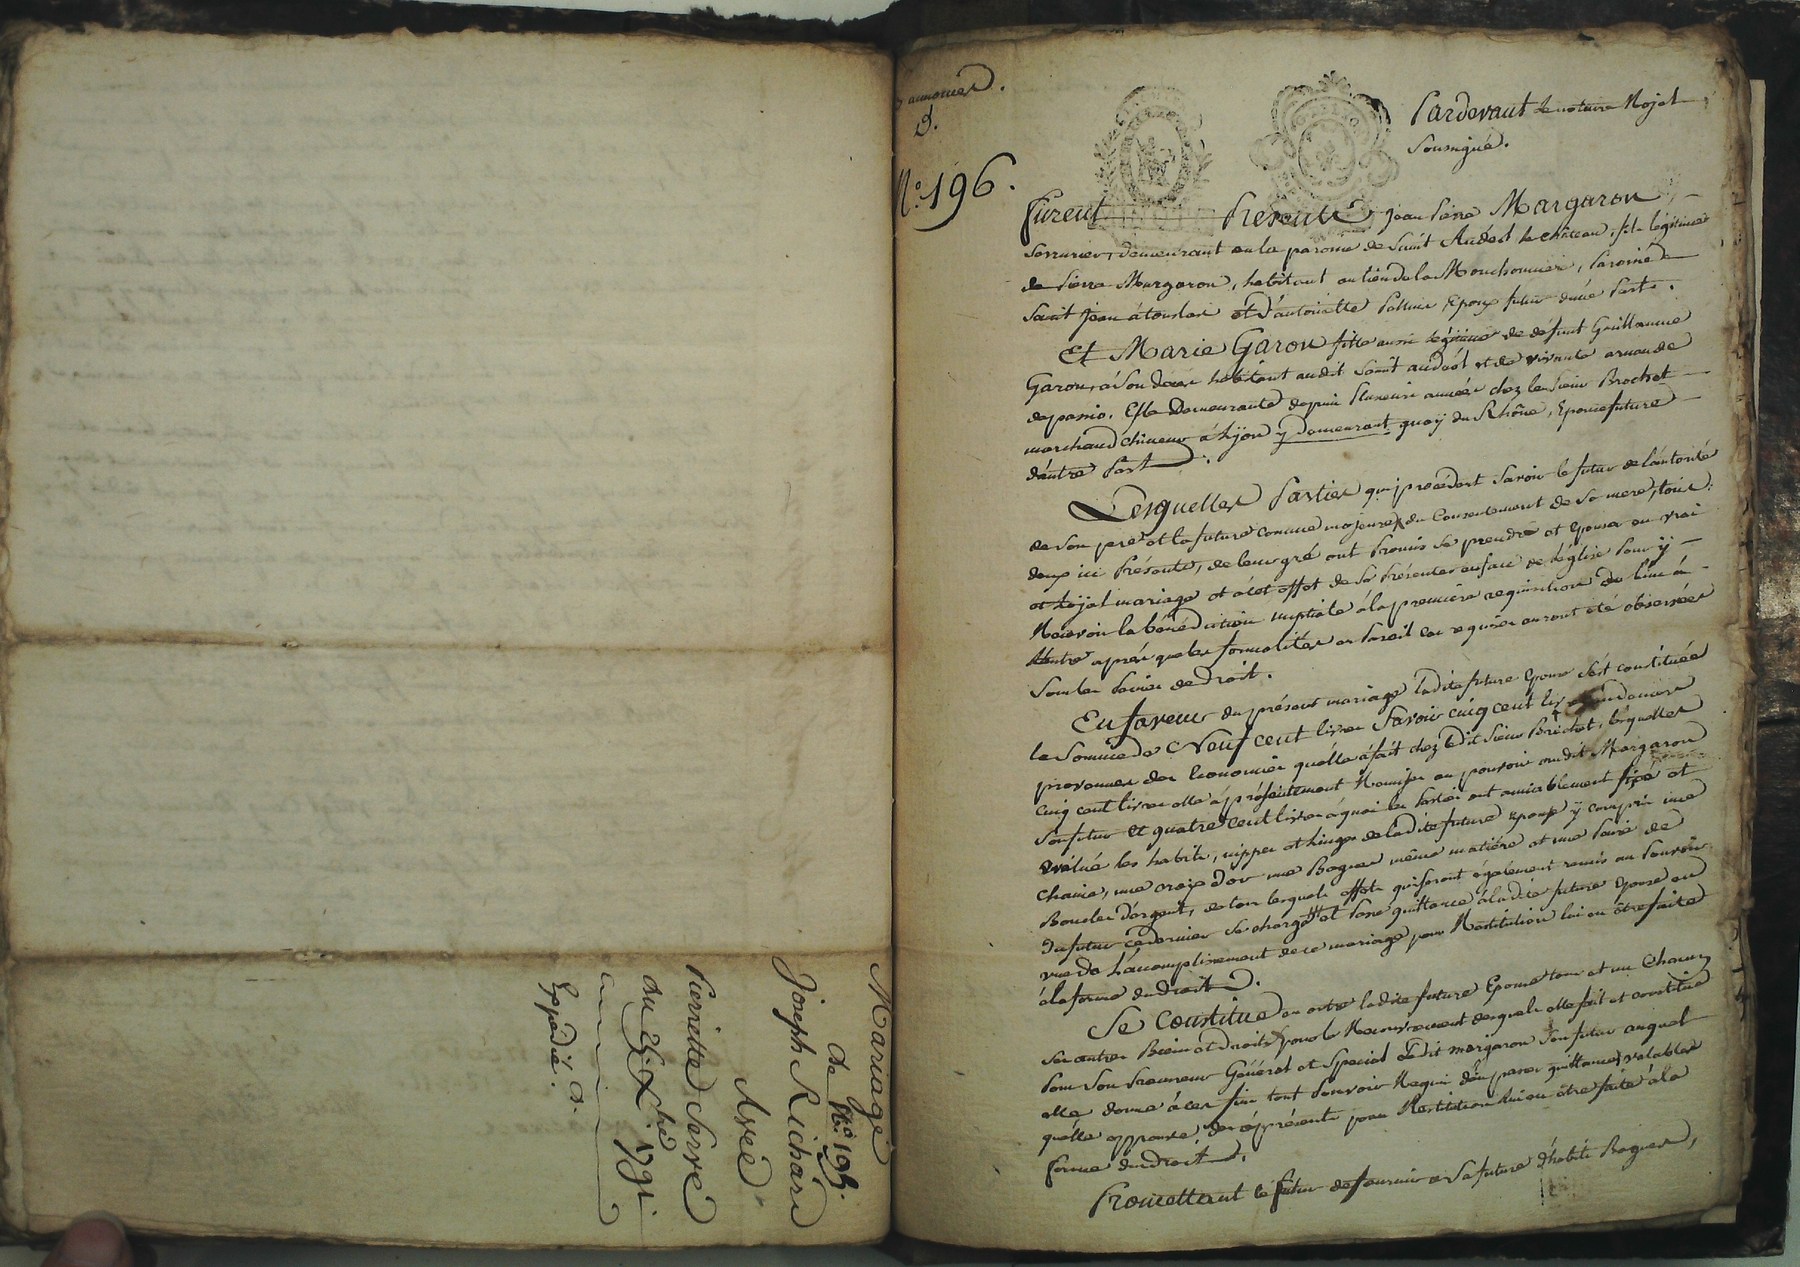 Mariage
de N.º 195.
Joseph Richard
Avec
Pierrette Serve
du 25. X.bre 1791.
Expédié.
N.º 196.
Pardevant le notaire Royal
Soussigné.
Furent Présents Jean Pierre Margaron
serrurier, demeurant en la paroisse de Saint Andéol le château, fils légitime
de Pierre Margaron, habitant au lieu de la Mouchonnier, Paroisse de
Saint Jean à touslas et d'antoinette Epoux futur d'une Part.
Et Marie Garon fille aussi légitime de défunt Guillaume
Garon, à son décès habitant audit Saint andéol et de vivante
Elle Demeurante depuis Plusieurs années chez le Sieur Brochet
marchand à Lyon y demeurant quay du Rhône, Epouse future
d'autre Part.
Lesquelles Parties qui procédent savoir le futur de l'autorité
de son pere et la future comme majeure, du Consentement de sa mere, tous
deux ici Présents, de leur gré ont Promis se prendre et Epouser en vrai
et Loyal mariage et à cet effet de se Présenter en face de l'église Pour y
Recevoir la bénédiction nuptiale à la premiere requisition de l'un à
l'autre après que les formalités en Pareil cas requises auront été observées
sous les Peines de Droit.
En faveur du présent mariage Ladite future Epouse s'est constituée
la Somme de Neuf cent livres Savoir cinq cent livres
provenues des Economies qu'elle a fait chez ledit Sieur Brochet, lesquelles
cinq cent livres elle a présentement Remises au pouvoir dudit Margaron
son futur et quatre cent livres à quoi les Parties ont amiablement fixé et
évalué les habits, nippes et linges de ladite future Epouse y compris une
Chaine, une croix d'or une Bague même matiére et une Paire de
Boucles d'argent, de tous lesquels effets qui seront également remis au Pouvoir
du futur ce dernier se charge et Passe quittance à ladite future Epouse en
vue de L'accomplissement de ce mariage pour Restitution lui en être faite
à la forme du Droit.
Se Constitue en outre ladite future Epouse tous et un Chacun
ses autres Biens et Droits pour le Recouvrement desquels elle fait et constitue
Pour son Procureur Général et Special Ledit margaron son futur auquel
elle donne à ces fins tout Pouvoir Requis d'en passer quittances valables
qu'elle approuve dès à présent pour Restitution lui en être faite à la
forme du Droit.
Promettant le futur de fournir à sa future d'habits Bagues,